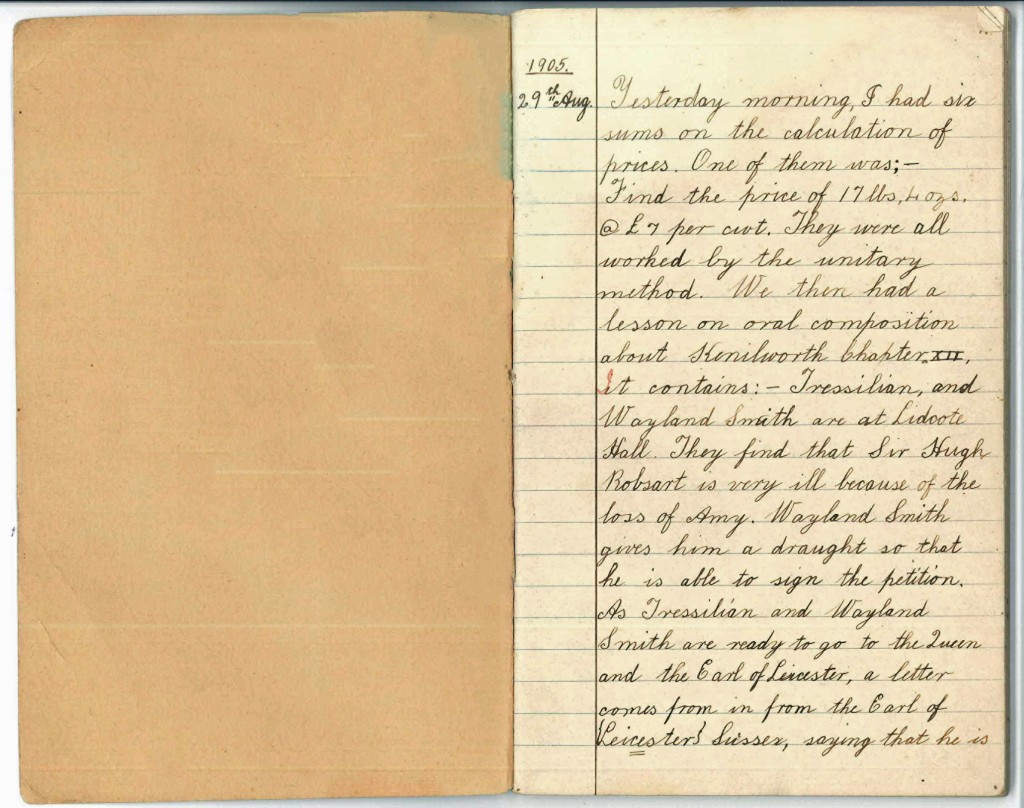 1905.
29th Aug. Yesterday morning, I had six
sums on the calculation of
prices. One of them was;—
Find the price of 17 lbs, 4 ozs.
@ £7 per cwt. They were all
worked by the unitary
method. We then had a
lesson on oral composition
about Kenilworth Chapter XII.
It contains:— Tressilian, and
Wayland Smith are at Lidcote
Hall. They find that Sir Hugh
Robsart is very ill because of the
loss of Amy. Wayland Smith
gives him a draught so that
he is able to sign the petition.
As Tressilian and Wayland
Smith are ready to go to the Queen
and the Earl of Leicester, a letter
comes from in from the Earl of
{Leicester} Sussex, saying that he is